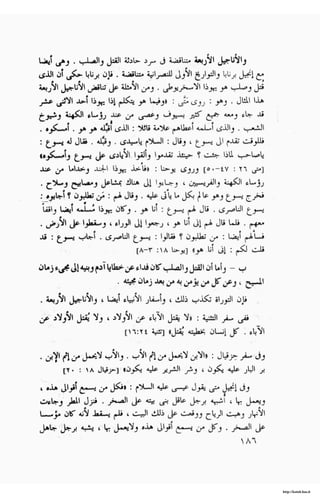 والأناجيل الأربعة متناقضة في سرد حادثة القتل والصلب . وهي أيضا
مع إنجيل برنابا والتواريخ الأولى للنصرانية متناقضة . فإن برنابا حكى أن الذى
قتل وصلب هو يهوذا الاسخريوطى . ومن الأمثلة على تناقض الأناجيل الأربعة
هذا المثال : وهو : روى متى : « وفيما هو يتكلم إذا يهوذا أحد الاثنى عشر
قد جاء ومعه جمع كثير بسيوف وعصى من عند رؤساء الكهنة وشيوخ
الشعب . والذى أسلمه أعطاهم علامة قائلا : الذى أُقبِّله هو هو . أمسكوه .
فللوقت تقدم إلى يسوع ، وقال : السلام ياسيدى . وقبله . فقال له يسوع :
ياصاحب لماذا جئت ؟ حينئذ تقدموا وألقوا الأيادى على يسوع وأمسكوه»
[متى ٢٦ : ٤٧-٥٠] وروى يوحنا : «فأخذ يهوذا الجند وخداما من عند
رؤساء الكهنة والفريسيين ، وجاءوا إلى هناك بمشاعل ومصابيح وسلاح .
فخرج يسوع وهو عالم بكل ما يأتى عليه . وقال لهم : من تطلبون ؟ أجابوه :
يسوع الناصرى . قال لهم يسوع : أنا هو . وكان يهوذا مُسلِّمه أيضا واقفا
معهم . فلما قال لهم إنى أنا هو ، رجعوا إلى الوراء ، وسقطوا على الأرض .
فسألهم أيضا : من تطلبون ؟ فقالوا : يسوع الناصرى . أجاب يسوع : قد
قلت لكم : إنى أنا هو» [يوحنا ١٨ : ٣-٨]
ب – وأما أن القتل والصلب كان عن فداء عن خطايا آدم وبنيه إلى مجىء زمان
المسيح ، وعن كل من يؤمن به من بعد زمن مجيئه .
فإن التوراة تنكر ذلك ، وأسفار الأنبياء أيضا ، والأناجيل الأربعة .
ففى سفر التثنية : «لا يُقتل الآباء عن الأولاد ، ولا يُقتل الأولاد عن
الآباء . كل إنسان بخطيئته يُقتل» [تثنية ٢٤:١٦]
وفى سفر حزقيال : «الابن لا يحمل من إثم الأب . والأب لا يحمل من إثم الابن .
بر البار عليه يكون ، وشر الشرير عليه يكون» [حزقيال ١٨ : ٢٠]
وفى إنجيل متى يقول عيسى عليه السلام : «فكل من يسمع أقوالى هذه ،
ويعمل بها ، أشبهه برجل عاقل بنى بيته على الصخر . فنزل المطر وجاءت
الأنهار وهبت الرياح ووقعت على ذلك البيت ، فلم يسقط لأنه كان مؤسسا
على الصخر . وكل من يسمع أقوالى هذه ولايعمل بها ، يشبه برجل جاهل
١٨٦
http://kotob.has.it